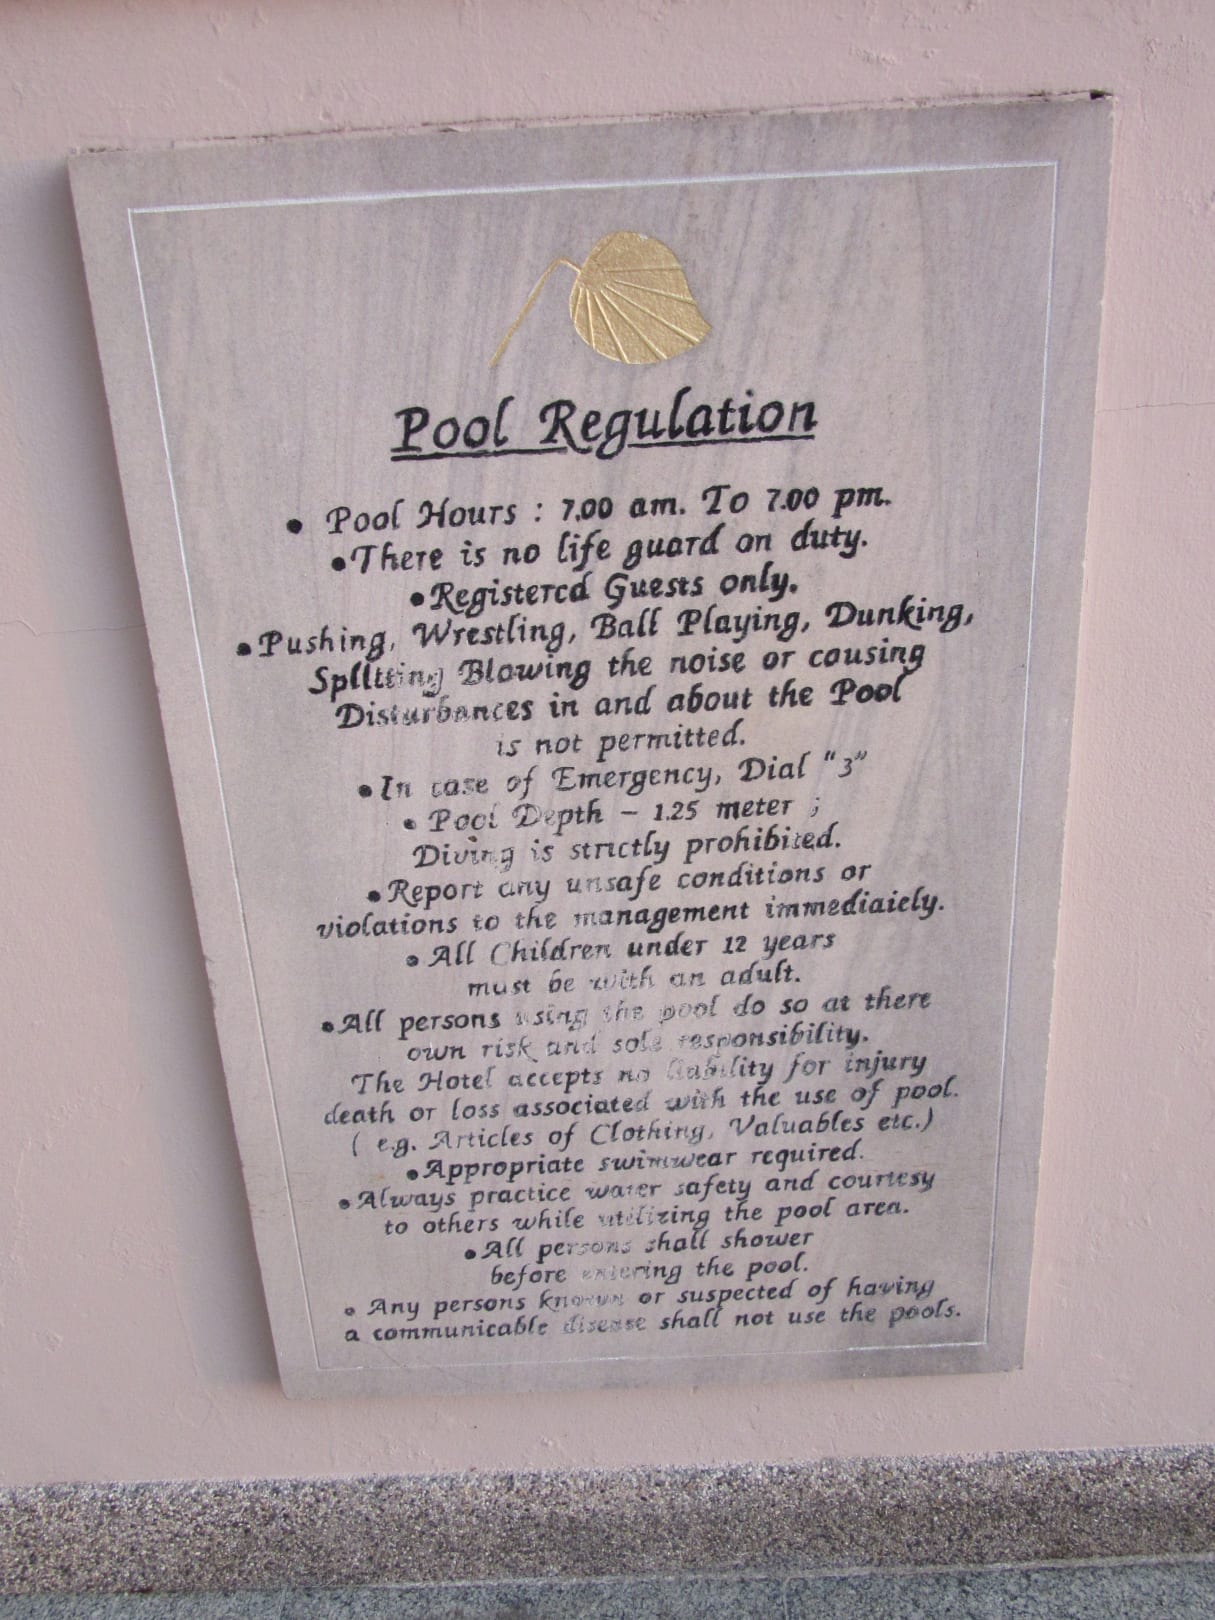 Pool Regulation
• Pool Hours : 7.00 am. To 7.00 pm.
•There is no life guard on duty.
•Registered Guests only.
•Pushing, Wrestling, Ball Playing, Dunking,
Blowing the noise or causing
Disturbances in and about the Pool
is not permitted.
•In case of Emergency, Dial "3"
• Pool Depth – 1.25 meter ;
Diving is strictly prohibited.
•Report any unsafe conditions or
violations to the management immediately.
•All Children under 12 years
must be with an adult.
•All persons using the pool do so at there
own risk and sole responsibility.
The Hotel accepts no liability for injury
death or loss associated with the use of pool.
( e.g. Articles of Clothing, Valuables etc.)
•Appropriate swimwear required.
•Always practice water safety and courtesy
to others while utilizing the pool area.
•All persons shall shower
before entering the pool.
• Any persons known or suspected of having
a communicable disease shall not use the pools.